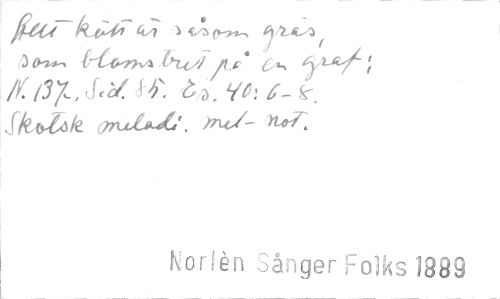 Allt kött är såsom gräs,
som blomstret på en graf;
N. 137, Sid. 85. Es. 40: 6-8.
Skotsk melodi. mel-not.
Norlèn Sånger Folks 1889